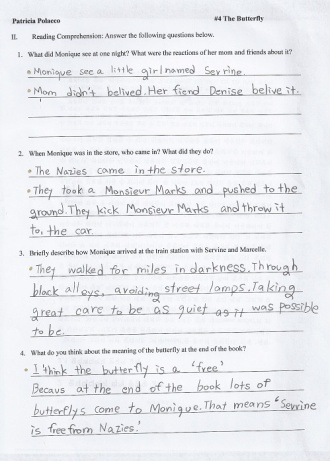 Patricia Polacco #4 The Butterfly
II. Reading Comprehension: Answer the following questions below.
1. What did Monique see at one night? What were the reactions of her mom and friends about it?
• Monique see a little girl named Sevrine.
• Mom didn't belived. Her fiend Denise belive it.
2. When Monique was in the store, who came in? What did they do?
• The Nazies came in the store.
• They took a Monsieur Marks and pushed to the
ground. They kick Monsieur Marks and throw it
to, the car.
3. Briefly describe how Monique arrived at the train station with Servine and Marcelle.
• They walked for miles in darkness. Through
black alleys, avoiding street lamps. Taking
great care to be as quiet as it was possible
to be.
4. What do you think about the meaning of the butterfly at the end of the book?
• I think the butterfly is a 'free'
Becaus at the end of the book lots of
butterflys come to Monique. That means 'Sevrine
is free from Nazies.'